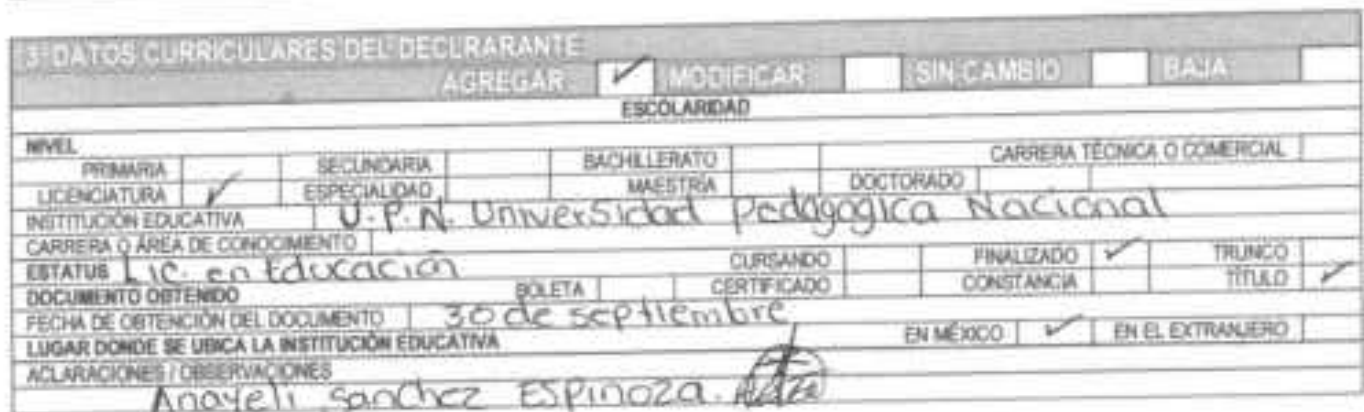 3. DATOS CURRICULARES DEL DECLRARANTE
AGREGAR ✓ MODIFICAR SIN CAMBIO BAJA
ESCOLARIDAD
NIVEL
PRIMARIA SECUNDARIA BACHILLERATO CARRERA TÉCNICA O COMERCIAL
LICENCIATURA ✓ ESPECIALIDAD MAESTRÍA DOCTORADO
INSTITUCIÓN EDUCATIVA U.P.N. Universidad Pedagogica Nacional
CARRERA O ÁREA DE CONOCIMIENTO
ESTATUS Lic. en Educación CURSANDO FINALIZADO ✓ TRUNCO
DOCUMENTO OBTENIDO BOLETA CERTIFICADO CONSTANCIA TÍTULO ✓
FECHA DE OBTENCIÓN DEL DOCUMENTO 30 de septiembre
LUGAR DONDE SE UBICA LA INSTITUCIÓN EDUCATIVA EN MÉXICO ✓ EN EL EXTRANJERO
ACLARACIONES / OBSERVACIONES
Anayeli Sanchez Espinoza.